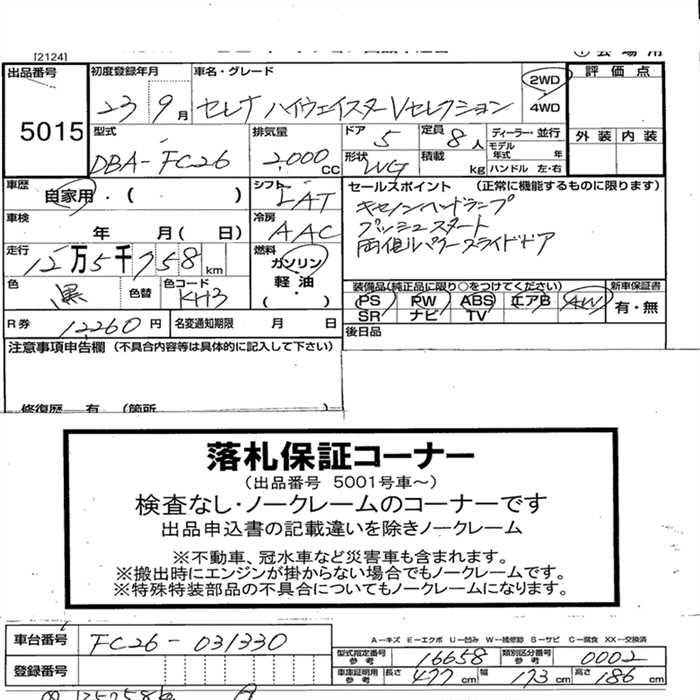 [2124]
出品番号
5015
初度登録年月
23 9月
車名・グレード
セレナ ハイウェイスターVセレクション
2WD
4WD
評価点
外装 内装
型式
DBA-FC26
排気量
2,000 CC
ドア 5
形状 WG
定員 8人
積載 kg
ディーラー・並行
モデル年式 年
ハンドル 左・右
車歴
自家用・( )
シフト
LAT
車検
年 月( 日)
冷房
AAC
セールスポイント (正常に機能するものに限ります)
キセノンヘッドランプ
プッシュスタート
両側パワースライドドア
走行
12万5千758km
燃料
ガソリン
軽油・
( )
色
黒
色替
色コード
KH3
装備品(純正品に限り○をつけてください)
PS PW ABS エアB AW
SR ナビ TV
新車保証書
有・無
R券 12260円
名変通知期限 月 日
後日品
注意事項申告欄 (不具合内容等は具体的に記入して下さい)
修復歴 有 (箇所
落札保証コーナー
(出品番号 5001号車～)
検査なし・ノークレームのコーナーです
出品申込書の記載違いを除きノークレーム
※不動車、冠水車など災害車も含まれます。
※搬出時にエンジンが掛からない場合でもノークレームです。
※特殊特装部品の不具合についてもノークレームになります。
車台番号 FC26-031330
登録番号
A－キズ E－エクボ U－凹み W－補修跡 S－サビ C－腐食 XX－交換済
型式指定番号参考 16658
類別区分番号参考 0002
車庫証明用参考 長さ 477cm 幅 173cm 高さ 186cm